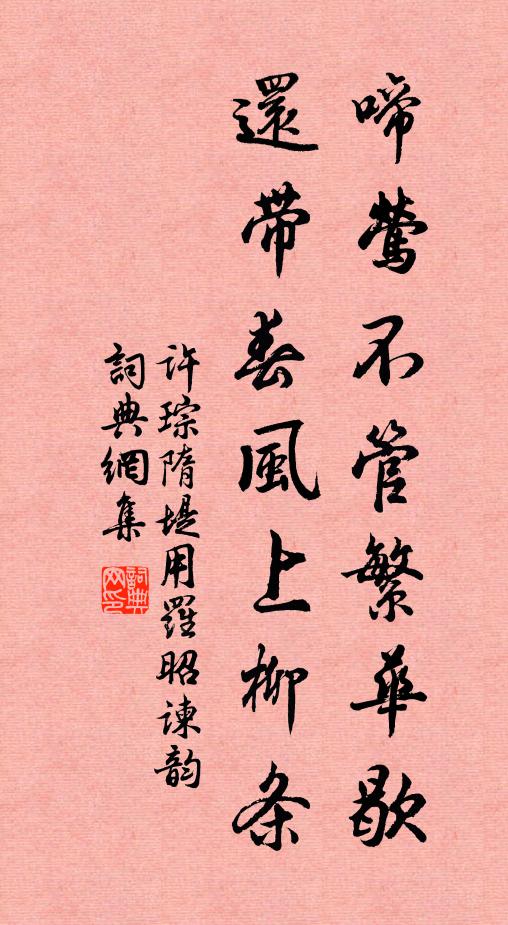 啼莺不管繁華歇
還带春風上柳条
许琮隋堤用羅昭谏韵
詞典網集
詞典网印